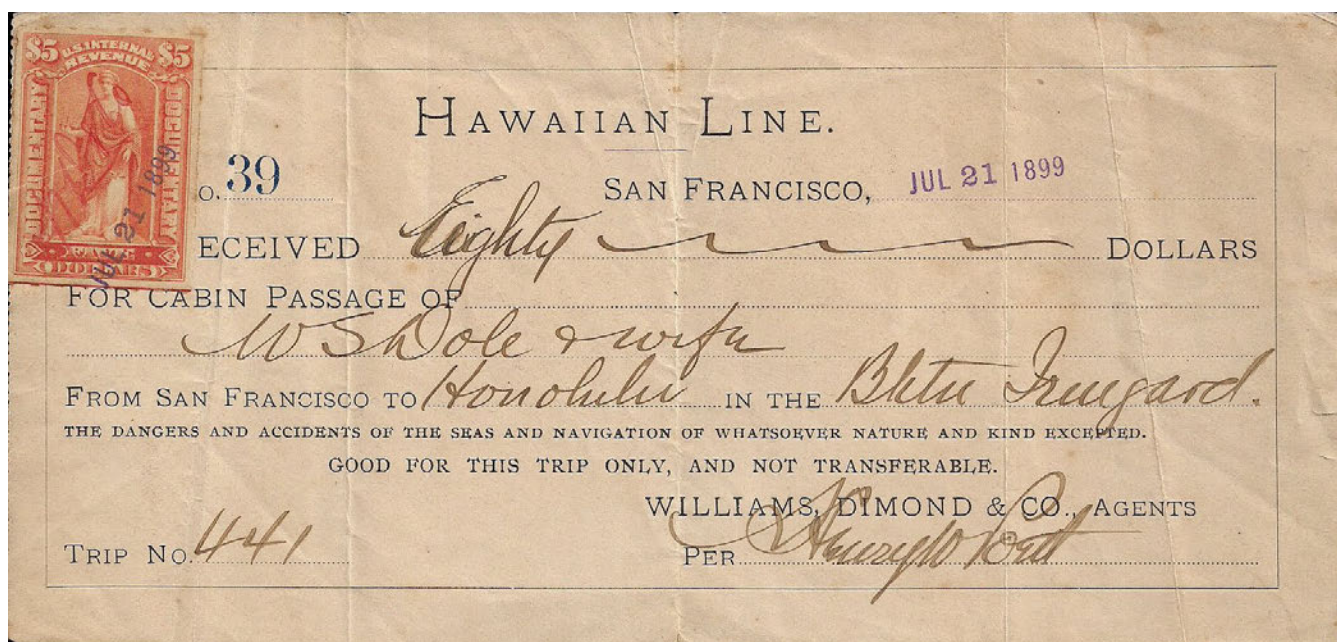 $5 U.S. INTERNAL REVENUE $5
DOCUMENTARY
DOCUMENTARY
FIVE
DOLLARS
JUL 21 1899
HAWAIIAN LINE.
O. 39 SAN FRANCISCO, JUL 21 1899
ECEIVED Eighty DOLLARS
FOR CABIN PASSAGE OF
W S Dole & wife
FROM SAN FRANCISCO TO Honolulu IN THE Bktn Irmgard.
THE DANGERS AND ACCIDENTS OF THE SEAS AND NAVIGATION OF WHATSOEVER NATURE AND KIND EXCEPTED.
GOOD FOR THIS TRIP ONLY, AND NOT TRANSFERABLE.
WILLIAMS, DIMOND & CO., AGENTS
TRIP NO. 441 PER Henry W